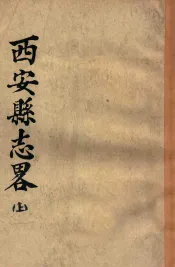 西安縣志畧
上